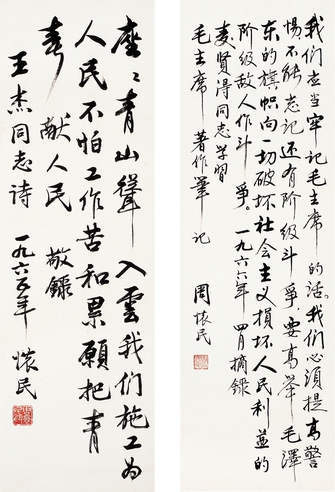 座〻青山聳入雲我们施工为
人民不怕工作苦和累願把青
春献人民 敬錄
王杰同志诗 一九六六年 懷民
我们应当牢记毛主席的话我们必须提高警
惕不能忘记还有阶级斗争要高举毛澤
东的旗帜向一切破坏社会主义損坏人民利益的
阶级敌人作斗争。一九六六年四月摘錄
麦賢得同志学習
毛主席著作筆记 周懷民